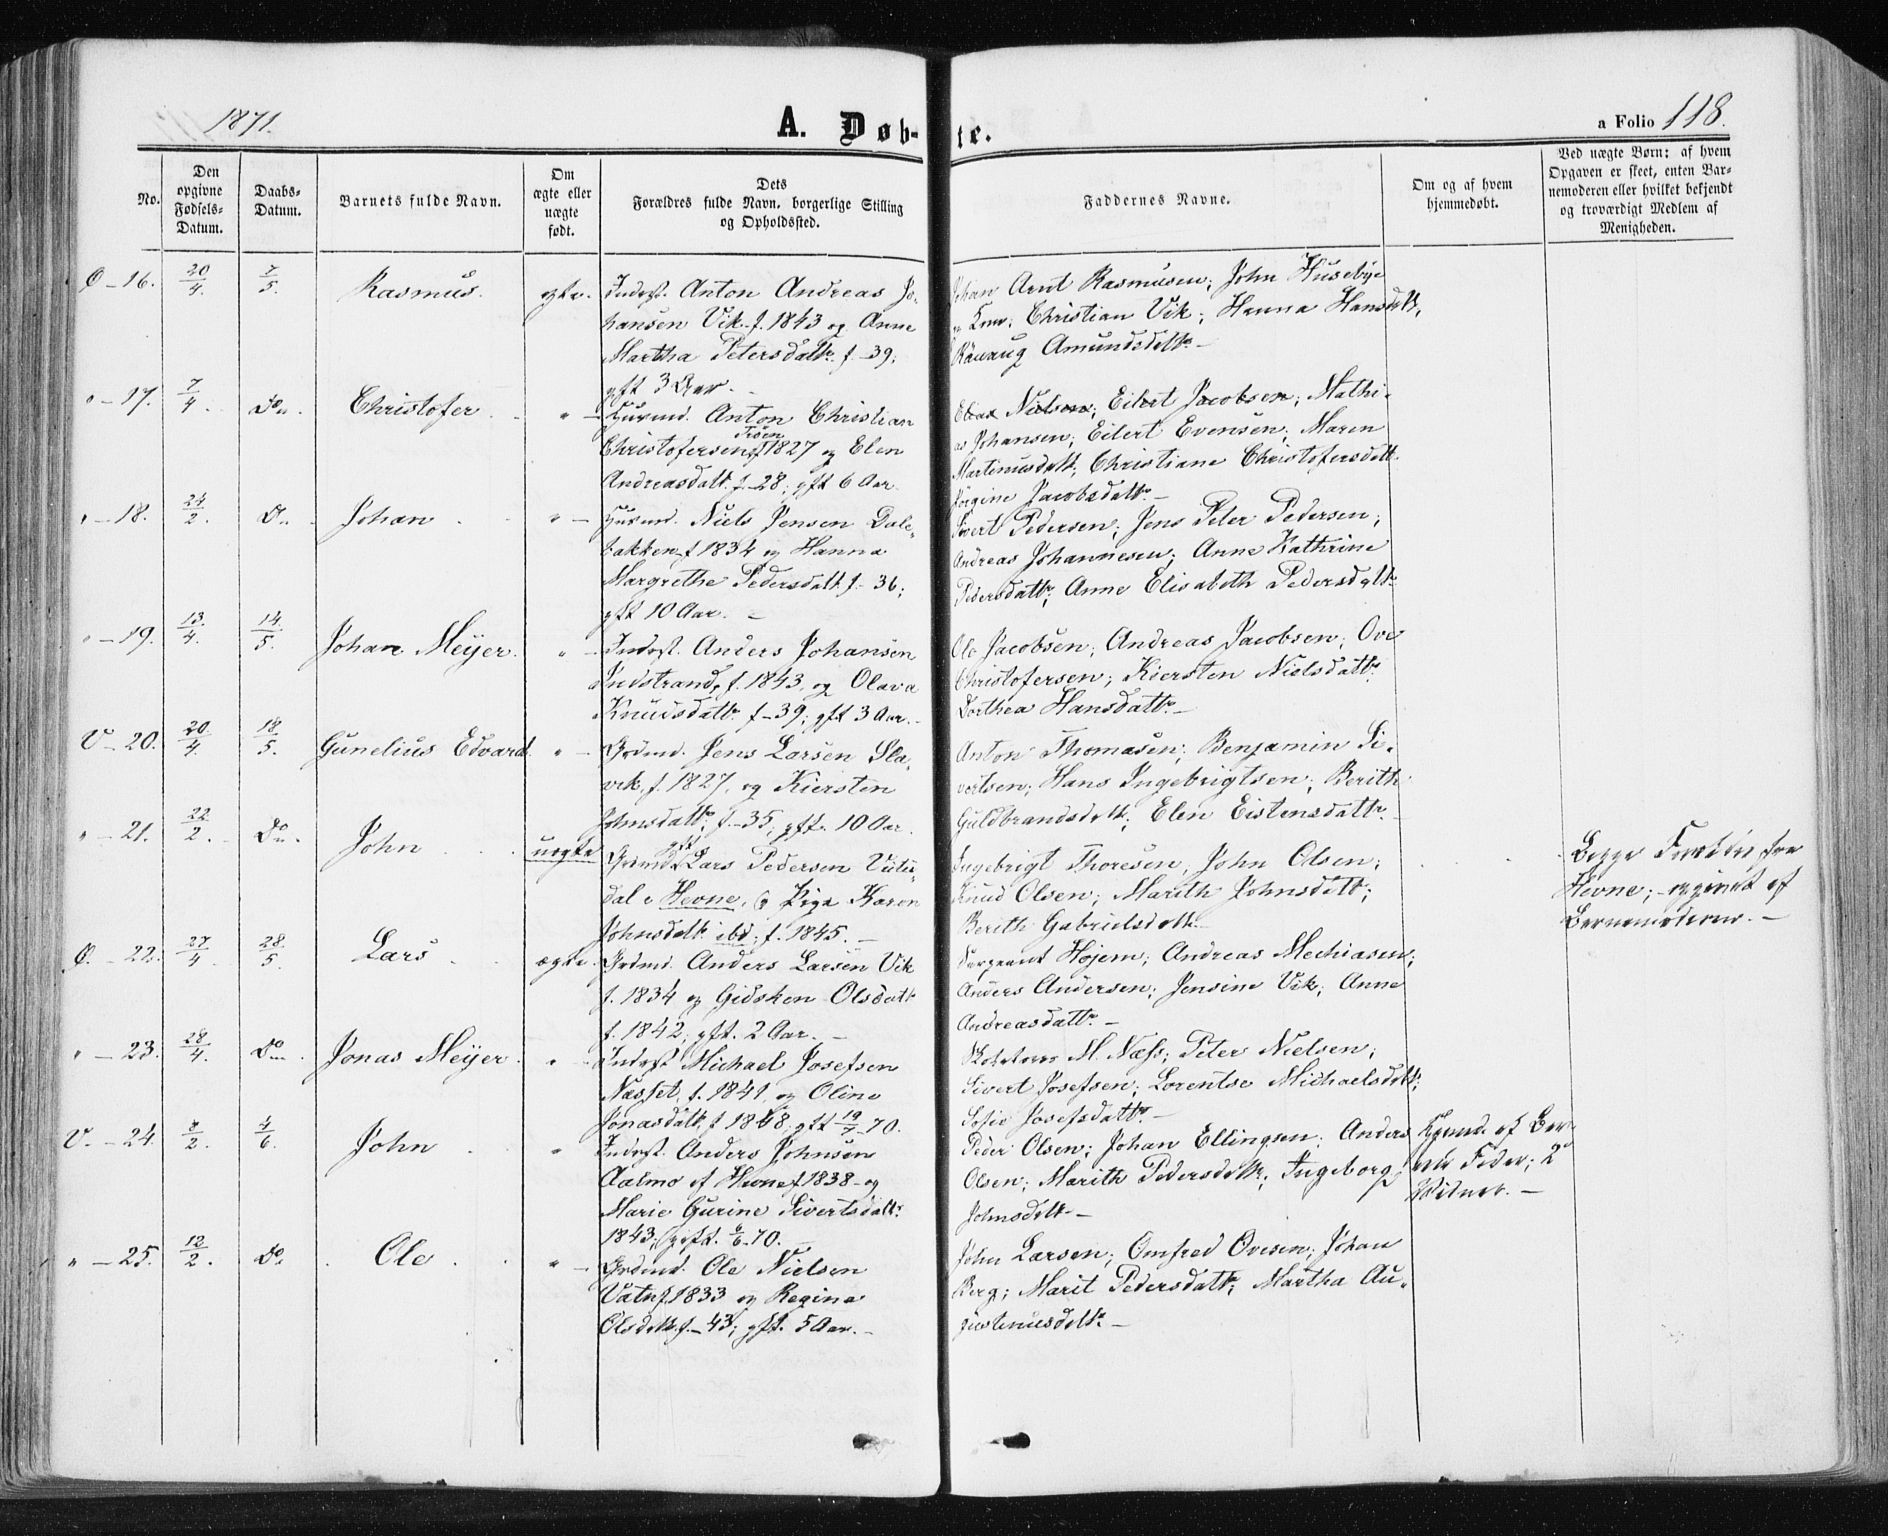 1871.
A. Døb-
te.
a Folio 118.
No.
Den
opgivne
Fødsels-
Datum.
Daabs-
Datum.
Barnets fulde Navn.
Om
ægte eller
uægte
født.
Dets
Forældres fulde Navn, borgerlige Stilling
og Opholdssted.
Faddernes Navne.
Om og af hvem
hjemmedøbt.
Ved uægte Børn: af hvem
Opgaven er skeet, enten Bar-
nemoderen eller hvilket bekjendt
og troværdigt Medlem af
Menigheden.
Ø - 16.
20/4.
7/5.
Rasmus.
ægte.
Inderst. Anton Andreas Jo-
hansen Vik f. 1843 og Anne
Martha Petersdattr. f. - 39;
gift 3 Aar.
Johan Arnt Rasmusen; John Husebye
Christian Vik; Hanna Hansdatt,
Rønnaug Amundsdattr. -
" - 17.
7/4.
Do.
Christofer.
" -
Husmd. Anton Christian
Christofersen Trøen f. 1827 og Elen
Andreasdatt. f. - 28; gift 6 Aar.
Elias Nielsen; Eilert Jacobsen; Mathi-
as Johansen; Eilert Evensen; Maren
Martinusdatt; Christiane Christofersdatt.
Jørgine Jacobsdattr. -
" - 18.
24/2.
Do.
Johan
" -
Husmd. Niels Jensen Dale-
bakken f. 1834 og Hanna
Margrethe Pedersdatt. f. - 36;
gift 10 Aar. -
Sivert Pedersen; Jens Peter Pedersen;
Andreas Johannesen; Anne Kathrine
Pedersdattr; Anne Elisabeth Pedersdattr.
" - 19.
13/4.
14/5.
Johan Meÿer.
" -
Inderst. Anders Johansen
Indstrand, f. 1843, og Olava
Knudsdattr. f - 39; gift 3 Aar. -
Ole Jacobsen; Andreas Jacobsen; Ove
Christofersen; Kiersten Nielsdattr.
Dorthea Hansdattr. -
V - 20.
20/4
18/5.
Gunelius Edvard.
" -
Grdmd. Jens Larsen Sla-
vik, f. 1827, og Kiersten
Johnsdattr, f. - 35; gift 10 Aar.
Anton Thomasen; Benjamin Si-
vertsen; Hans Ingebrigtsen; Berith
Guldbrandsdatt; Elen Eistensdattr. -
" - 21.
22/2.
Do.
John
uægte
Grdmd. gft Lars Pedersen
dal i Hevne, og Pige Karen
Johnsdatt ibd; f. 1845. -
Ingebrigt Thoresen, John Olsen;
Knud Olsen; Marith Johnsdatt;
Berith Gabrielsdatt. -
Begge Forældre fra
Hevne; - opgivet af
Barnemoderen. -
Ø. - 22.
27/4
28/5.
Lars
ægte.
Grdmd. Anders Larsen Vik
f. 1834 og Gidsken Olsdatt
f. 1842; gft. 2 Aar. -
Sergeant Højem; Andreas Mechiasen;
Anders Andersen; Jensine Vik; Anne
Andreasdattr. -
" - 23.
28/4.
Do.
Jonas Meÿer.
" -
Inderst Michael Josefsen
Næsset, f. 1841, og Oline
Jonasdatt, f 1848, gft 19/7 - 70.
M. Næss; Peter Nielsen;
Sivert Josefsen; Lorentse Michaelsdatt;
Sofie Josefsdattr. -
V. - 24.
8/2.
4/6.
John
"
Inderst. Anders Johnsen
Aalmo af Hevne f 1838 - og
Marie Gurine Sivertsdattr.
1843; gift. 6/6 - 70. -
Peder Olsen; Johan Ellingsen; Anders
Olsen; Marith Pedersdatt; Ingeborg
Johnsdatt. -
Hjemd. af Bar-
nets Fader; 2
Vidner. -
" - 25.
12/2.
Do.
Ole
" -
Grdmd. Ole Nielsen
Vatn f 1833 og Regina
Olsdatt. f. - 43; gft. 5 Aar. -
John Larsen; Omfred Ovesen; Johan
Berg; Marit Pedersdatt; Martha Au-
gustinusdatt. -